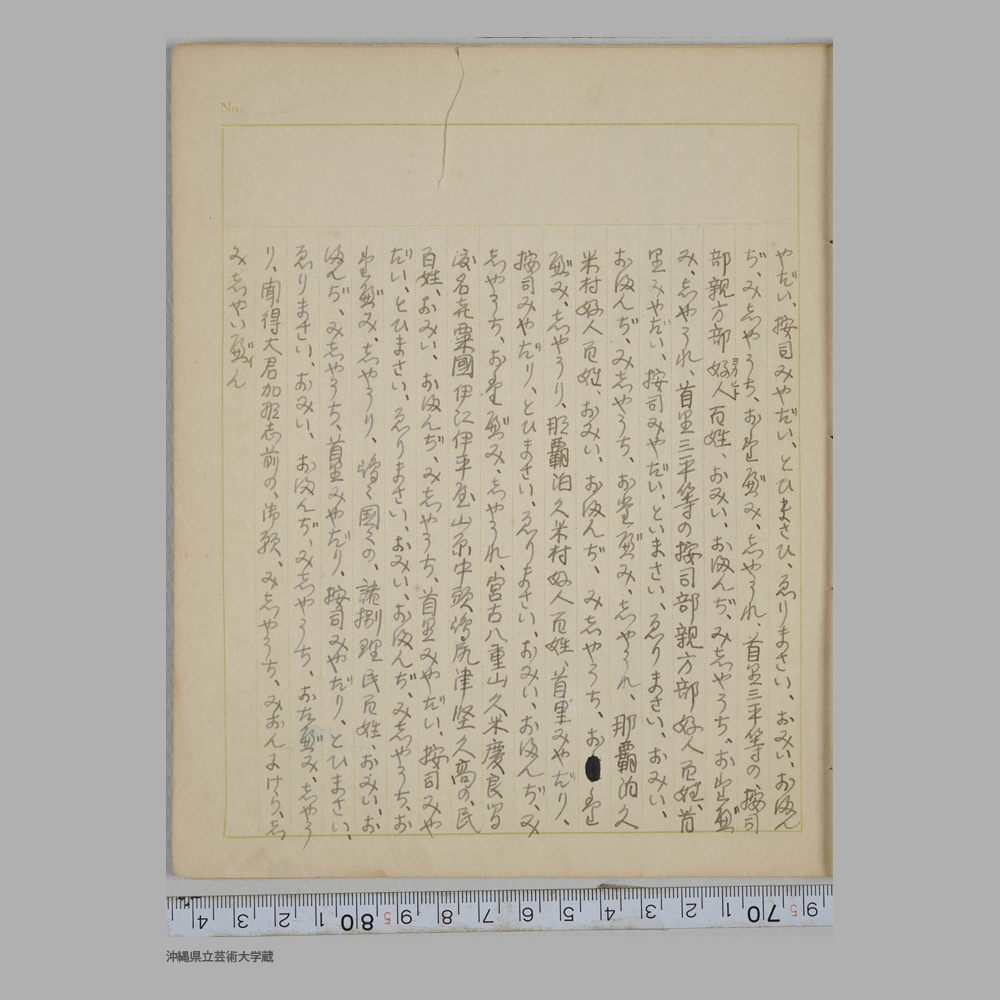 No.
やだい、按司みやだい、とひまさひ、ゑりまさい、おみい、おほん
ぢ、み志やうち、お堂ぼみ、志やうれ、首里三平等の按司
部親方部好人百姓、おみい、おほんぢ、み志やうち、お堂ぼ
み、志やうれ、首里三平等の按司部親方部好人百姓、首
里みやだい、按司みやだい、といまさい、ゑりまさい、おみい、
おほんぢ、み志やうち、お堂ぼみ、志やうれ、那覇泊久
米村好人百姓、おみい、おほんぢ、み志やうち、お堂
ぼみ、志やうり、那覇泊久米村好人百姓、首里みやだり、
按司みやだり、とひまさい、ゑりまさい、おみい、おほんぢ、み
志やうち、お堂ぼみ、志やうれ、宮古八重山久米慶良間
渡名喜粟國伊江伊平屋山原中頭島尻津堅久高の、民
百姓、おみい、おほんぢ、み志やうち、首里みやだい、按司みや
だい、とひまさい、ゑりまさい、おみい、おほんぢ、み志やうち、お
堂ぼみ、志やうり、嶋々国々の、諸捌理民百姓、おみい、お
ほんぢ、み志やうち、首里みやだり、按司みやだり、とひまさい、
ゑりまさい、おみい、おほんぢ、み志やうち、おたぼみ、志やう
り、聞得大君加那志前の、御願、み志やうち、みおんにけら、志
み志やいん
沖縄県立芸術大学蔵